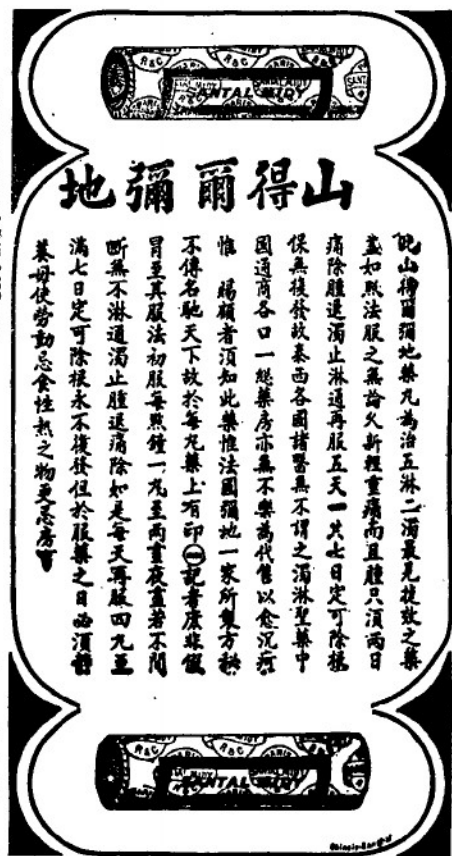 SANTAL MIDY
山得爾彌地
此山得爾彌地藥丸為治五淋二濁最見捷效之藥
蓋如照法服之無論久新輕重痛而且腫只須兩日
痛除腫退濁止淋通再服五天一共七日定可除根
保無復發故泰西各國諸醫無不謂之濁淋聖藥中
國通商各口一總藥房亦無不樂為代售以愈沉疴
惟 賜顧者須知此藥惟法國彌地一家所製方秘
不傳名馳天下故於每丸藥上有印㊀記者庶非假
冒至其服法初服每點鐘一丸至兩晝夜盡若不間
斷無不淋通濁止腫退痛除如是每天再服四丸至
滿七日定可除根永不復發但於服藥之日必須靜
養毋使勞動忌食性熱之物更忌房事
SANTAL MIDY